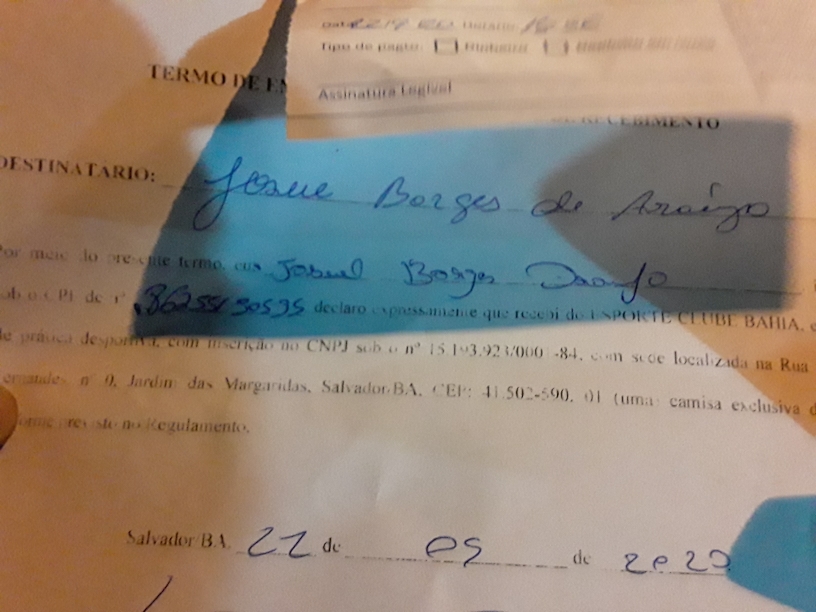 Data: Horário:
Tipo de pagto:
Assinatura Legível
TERMO DE
RECEBIMENTO
DESTINATÁRIO: Josue Borges de Araújo
Por meio do presente termo, eu, Josuel Borges
sob o CPF de nº 86255150535 declaro expressamente que recebi do ESPORTE CLUBE BAHIA, e
de prática desportiva, com inscrição no CNPJ sob o nº 15.193.923/0001-84, com sede localizada na Rua
nº 0, Jardim das Margaridas, Salvador/BA, CEP: 41.502-590, 01 (uma) camisa exclusiva d
previsto no Regulamento.
Salvador/BA, 22 de 05 de 2020